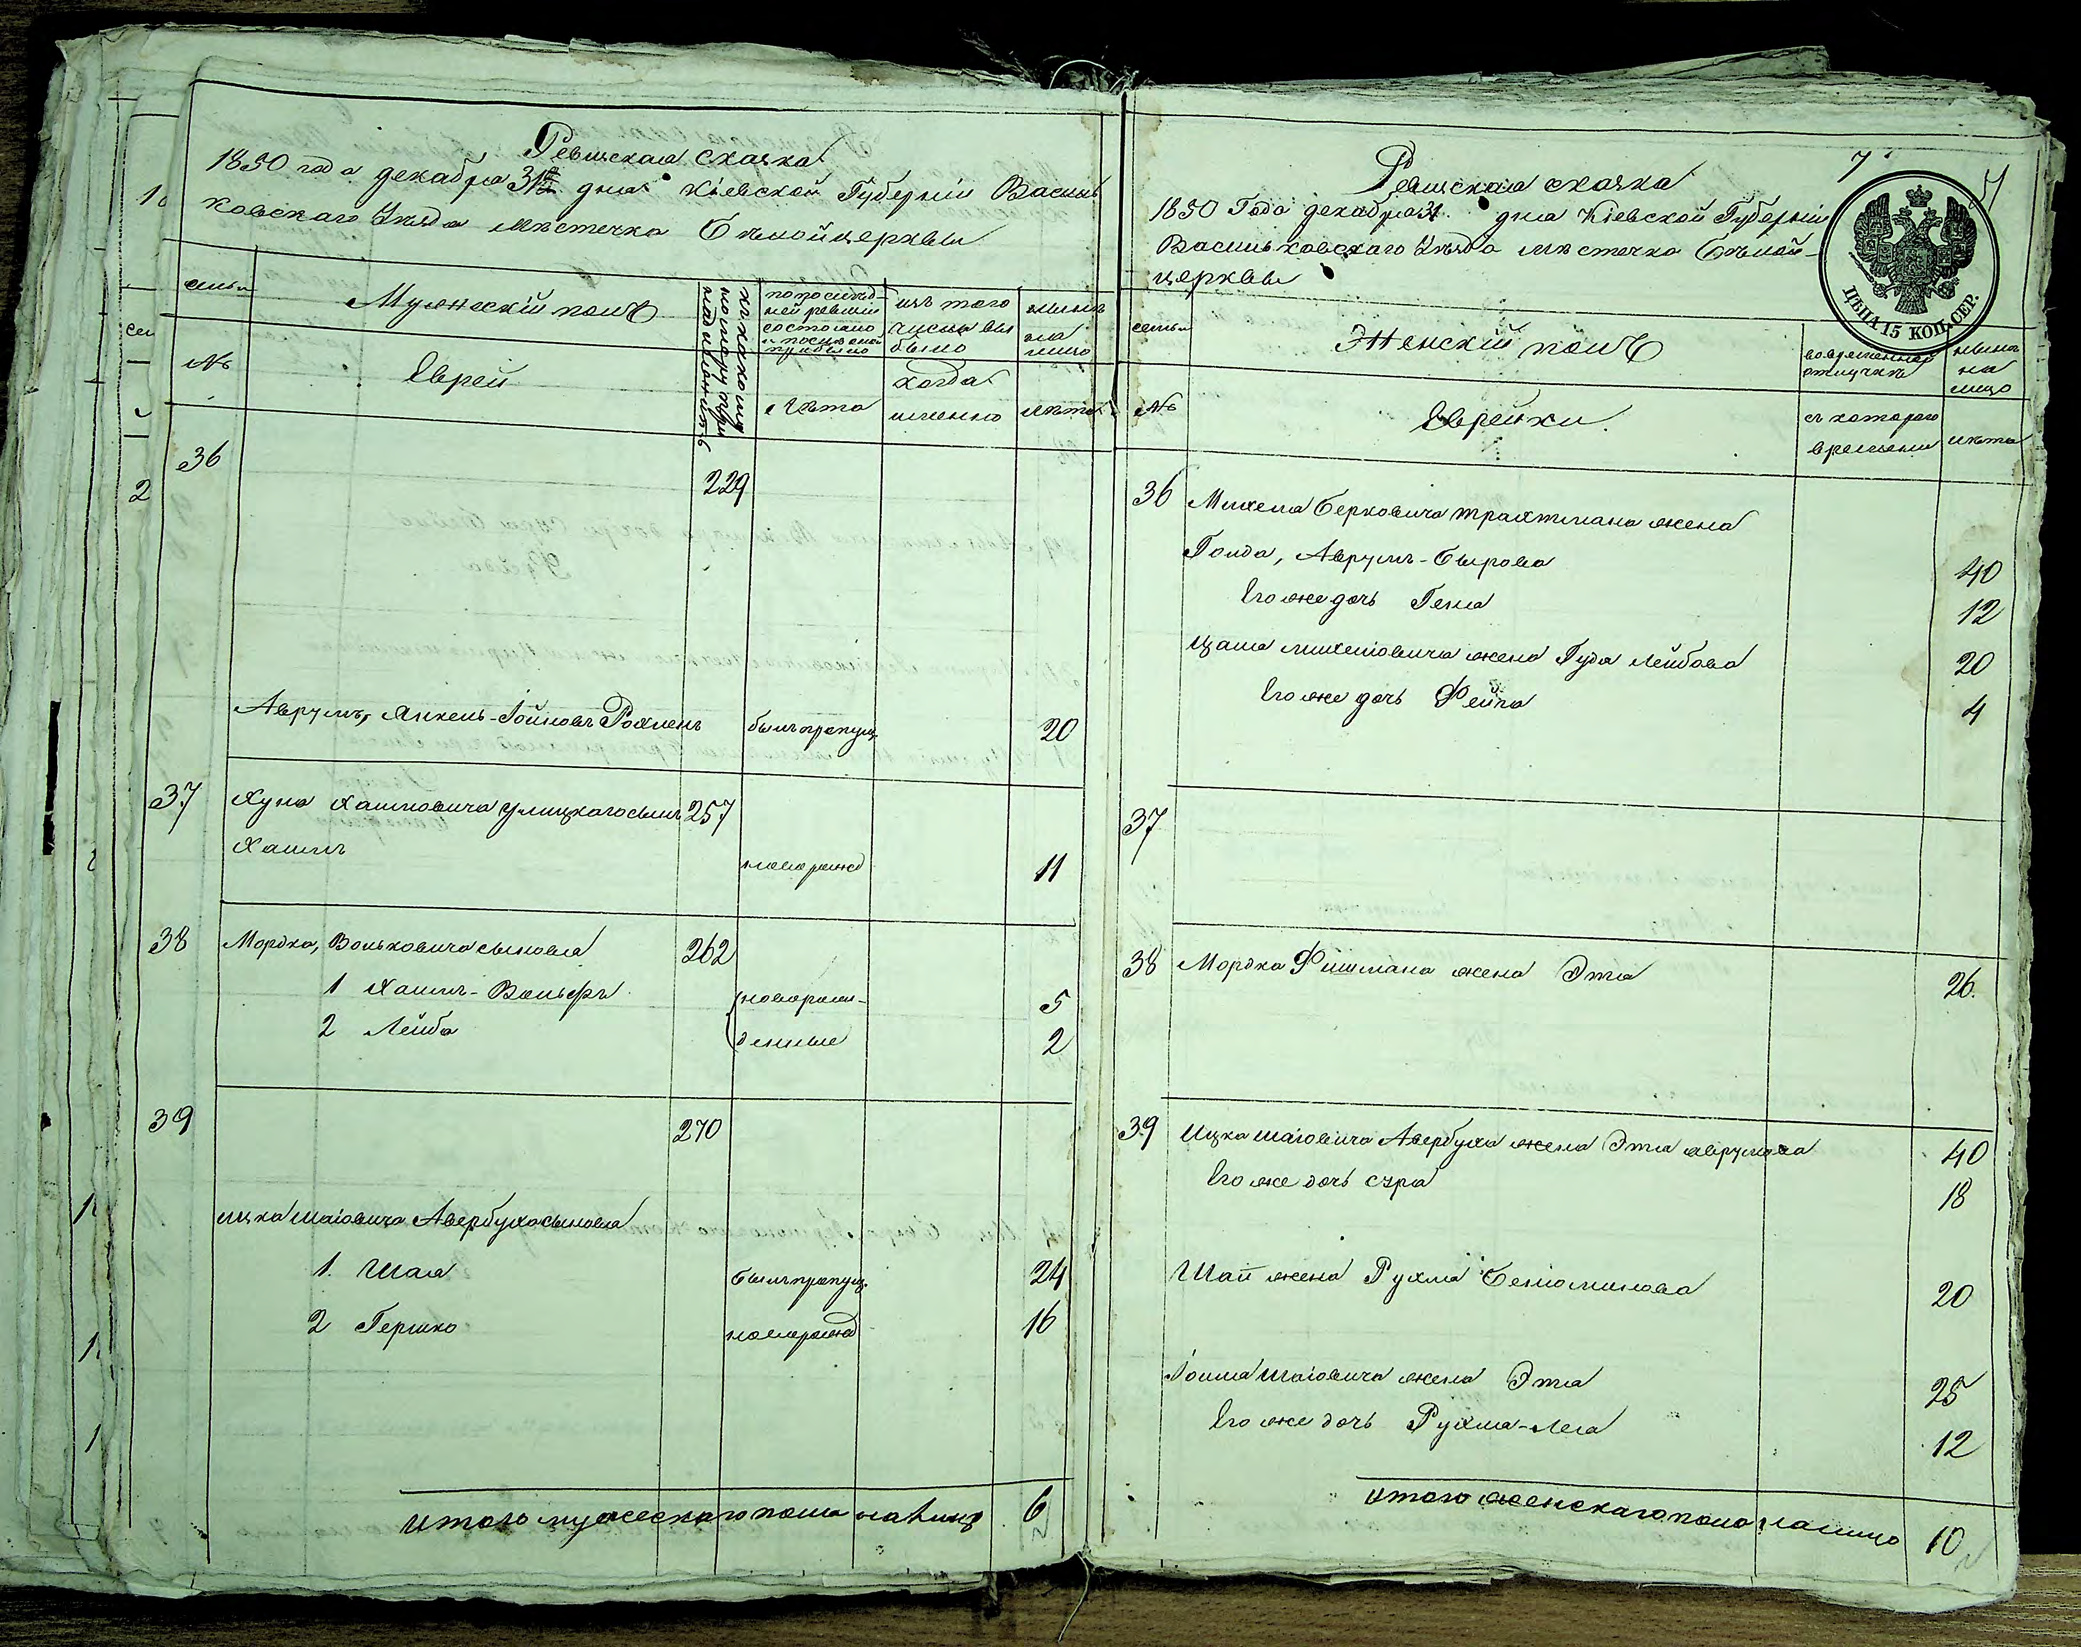 Ревизская сказка
1850 года декабря 31го дня Кіевской Губерніи Василь
ковскаго Уѣзда мѣстечка Бѣлойцеркви
семьи
Мужескій полъ
по послѣд
ней ревизіи
состояло
и послѣ оной
прибыло
изъ того
числа вы
было
нынѣ
на
лицо
№
Евреи
когда
Лѣта
именно
лѣта
36
229
Аврумъ, Янкель-Іойновъ Рохлень
былъ пропущ.
20
37
Хуна Хаимовича Улицкаго сынъ
257
Хаимъ
новорожд
11
38
Мордка, Вольковича сыновья
262
1 Хаимъ-Вольфъ
новорож-
5
2 Лейба
денные
2
39
270
ицка шаіовича Авербуха сыновья
1. Шая
былъ пропущ.
24
2 Гершко
новорожд
16
итого мужескаго пола на лицо
6
7
Ревизская сказка
1850 Года декабря 31. дня Кіевской Губерніи
Васильковскаго Уѣзда мѣстечка Бѣлой-
церкви
ЦѢНА 15 КОП. СЕР.
семьи
Женскій полъ
во временной
отлучкѣ
нынѣ
на
лицо
№
Еврейки.
съ котораго
времени
лѣта
36
Михеля Берковича трахтмана жена
Голда, Аврумъ-Сырова
40
Его же дочь Геня
12
Шаша михелювича жена Гудя Лейбова
20
Его же дочь Фейга
4
37
38
Мордка Фишмана жена Этя
26.
39
Ицка шаіовича Авербуха жена Этя аврумова
40
Его же дочь сура
18
Шаи жена Рухля Беніоминова
20
Іоиля Шаіовича жена Этя
25
Его же дочь Рухля-Лея
12
итого женскаго пола на лицо
10